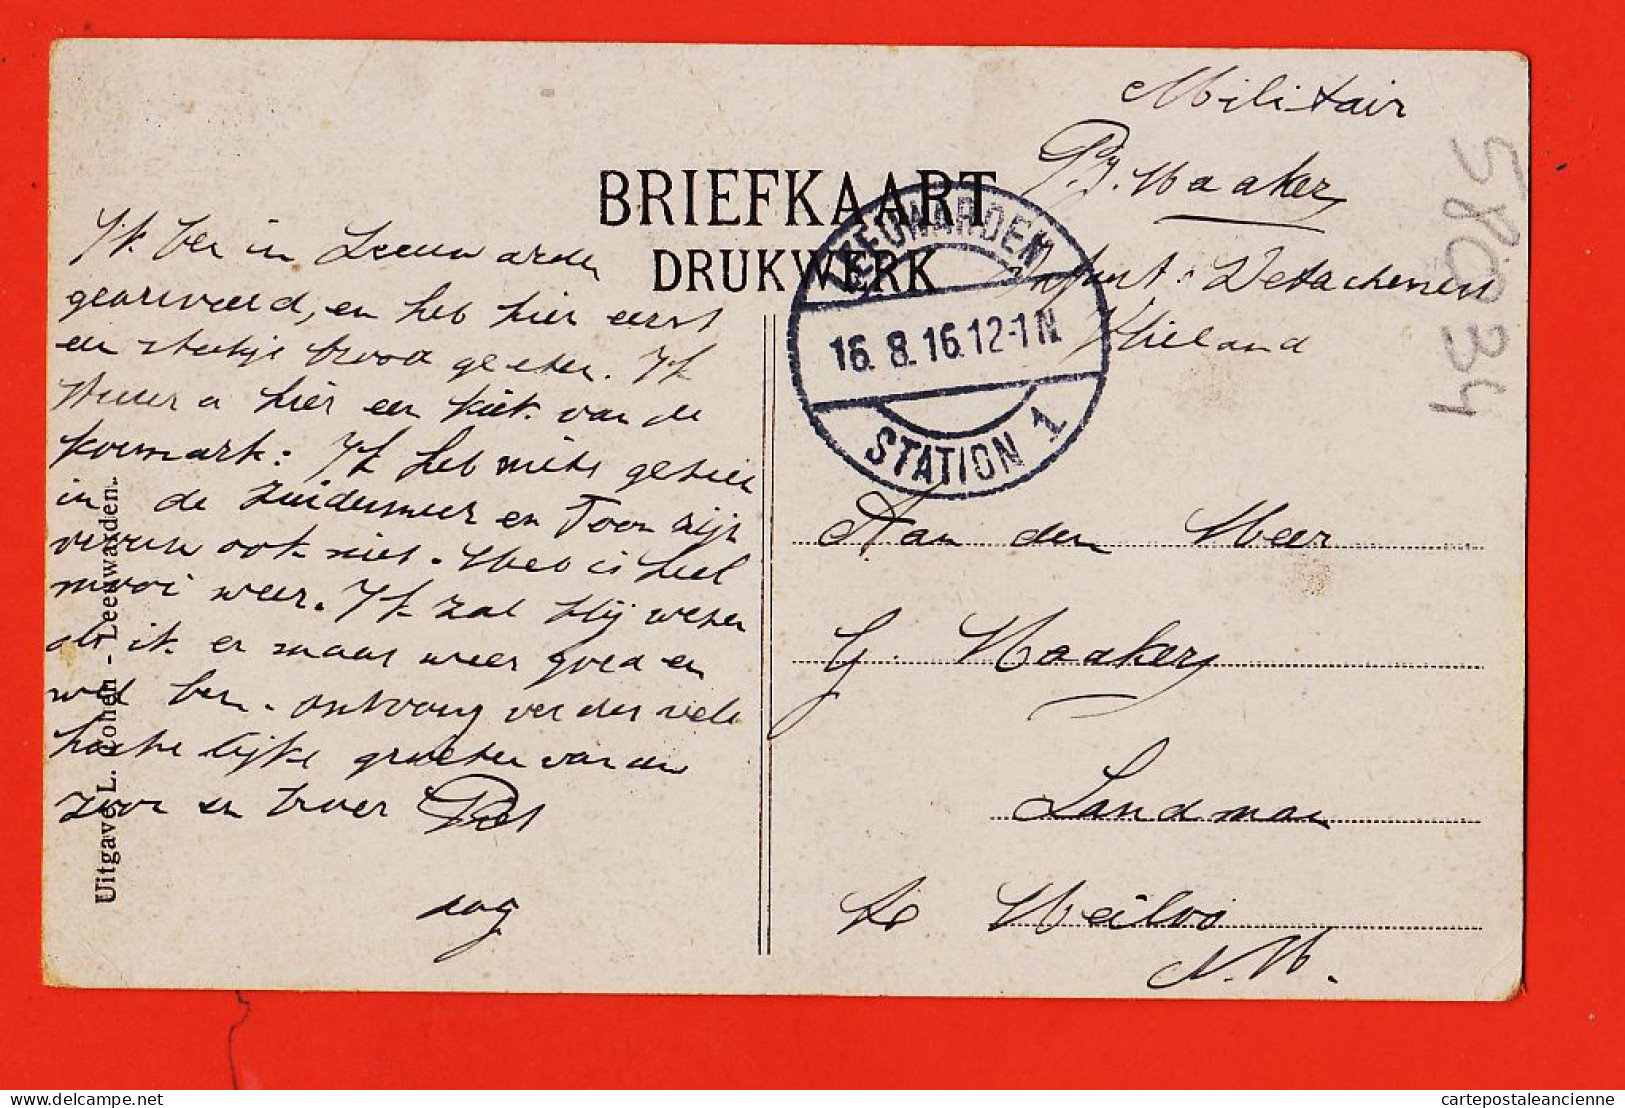 Militair
P. J. Maakers
BRIEFKAART
DRUKWERK
Infant: Detachement
Vlieland
LEEUWARDEN
16. 8. 16. 12-1 N
STATION 1
58034
Ik ben in Leeuwarden
gearriveerd, en heb hier eerst
een stukje brood gegeten. Ik
stuur u hier een kiek van de
koemark: Ik heb niets gezien
in de Zuidermeer en Toon
ook niet. Het is heel
mooi weer. Ik zal blij wezen
als ik er maar weer goed en
wel ben. ontvang verder vele
hartelijke groeten van den
zoon en broer Piet
dag
Aan den Heer
G. Maakers
Landman
te Heiloo
N. H.
Uitgave L. Cohen - Leeuwarden.
cartepostaleancienne.com
cartepostaleancienne